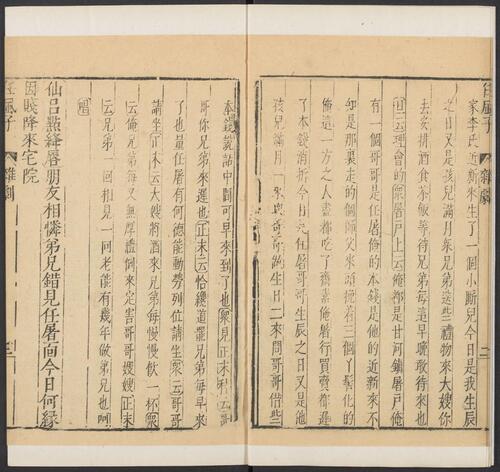 任風子 雜劇 二
家李氏近新來生了一個小厮兒今日是我生辰
之日又是孩兒滿月衆兄弟送些禮物來大嫂你
去安排酒食茶飯等待兄弟每這早晚敢待來也
旦云理會的衆屠户上云俺都是甘河鎮屠户俺
有一個哥哥是任屠俺的本錢是他的近新來不
知是那裏走的個師父來頭挽着三個丫髻化的
俺這一方之人盡都吃了齋素俺屠行買賣都遲
了本錢消折今日是任屠哥哥生辰之日又是他
孩兒滿月一來與哥哥做生日二來問哥哥借些
本錢説話中間可早來到了也衆見正末科云哥
哥你兄弟來遲也正末云恰纔道罷兄弟每早來
了也量任屠有何德能動勞列位請坐衆云哥哥
請坐正末云大嫂將酒來兄弟每慢慢飲一杯衆
云俺兄弟每又無厚禮倒來定害哥哥嫂嫂正末
云兄弟一回相見一回老能有幾年做弟兄也呵
唱
仙吕點絳唇朋友相憐弟兄錯見任屠面今日何緣
因賤降來宅院
任風子 雜劇 三